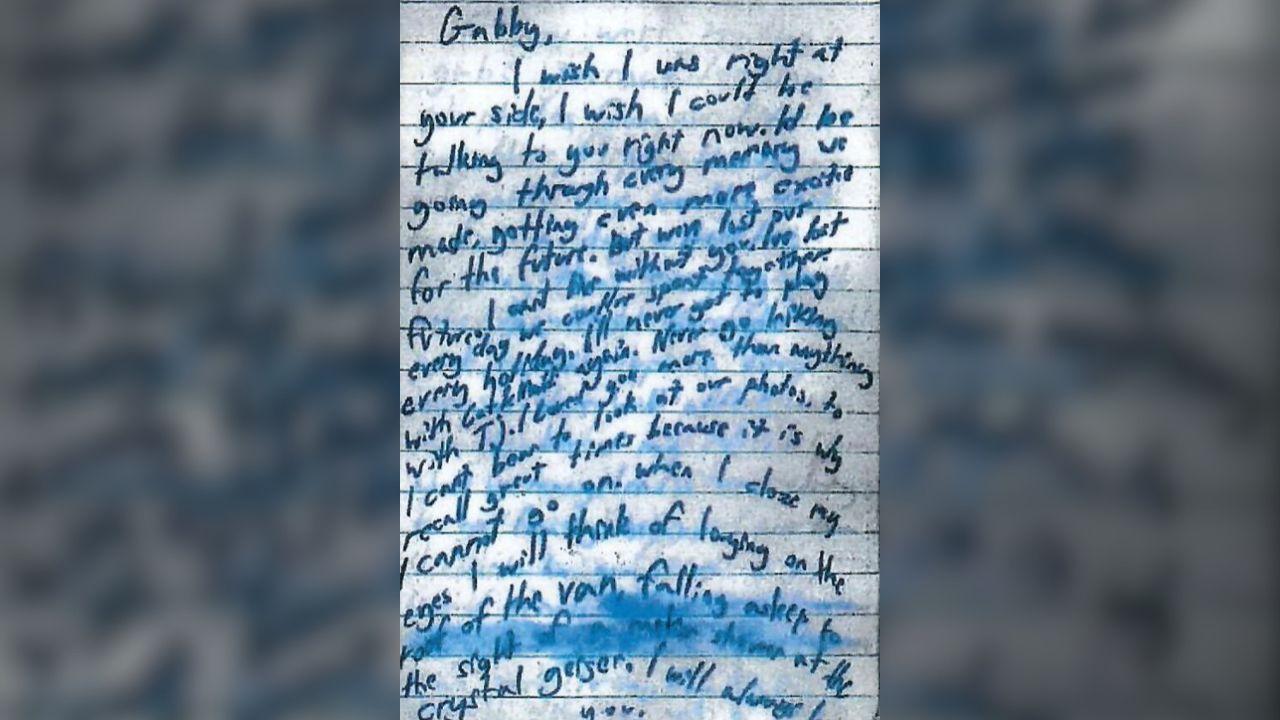 Gabby,
I wish I was right at
your side, I wish I could be
talking to you right now. Id be
going through every memory we
made, getting even more excited
for the future. But weve lost our
I cant live without you. Ive lost
future,
every day we could've spent together.
every holiday. I'll never get to play
with again. Never go hiking
with TJ. I loved you more than anything
I cant bear to look at our photos, to
recall great times because it is why
I cannot go on. when I close my
eyes I will think of laughing on the
roof of the van falling asleep to
the sight of at the
crystal geiser. I will always
you.